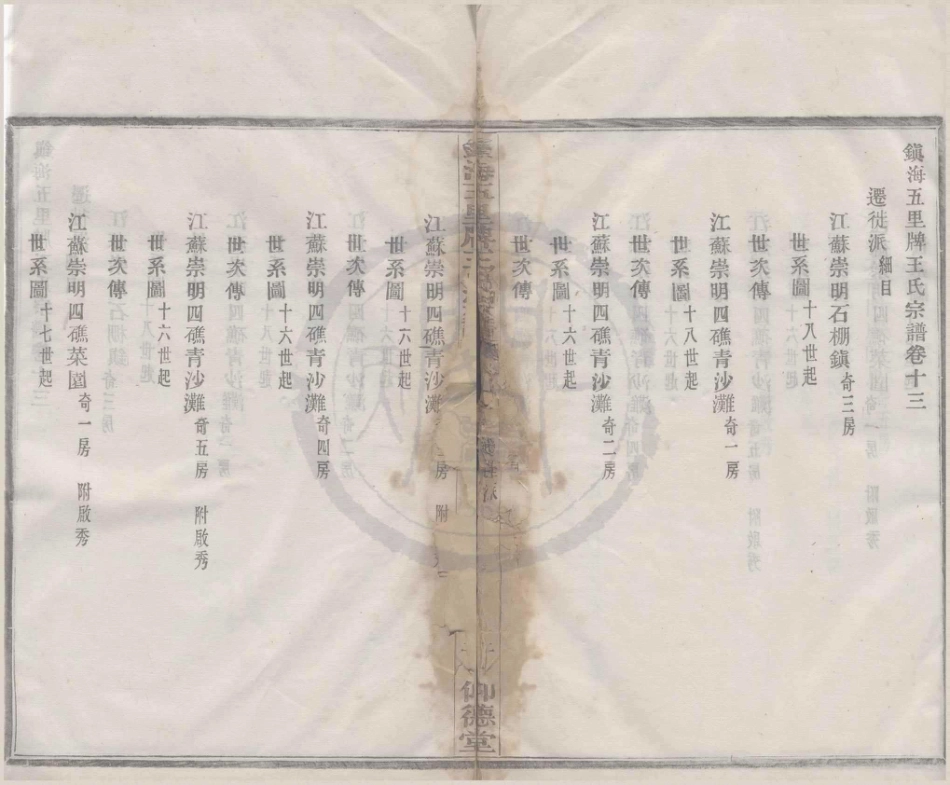 鎮海五里牌王氏宗譜卷十三
遷徙派細目
江蘇崇明石棚鎮奇三房
世系圖十八世起
世次傳
江蘇崇明四礁青沙灘奇一房
世系圖十八世起
世次傳
江蘇崇明四礁青沙灘奇二房
世系圖十六世起
世次傳
仰德堂
江蘇崇明四礁青沙灘 房 附
世系圖十六世起
世次傳
江蘇崇明四礁青沙灘奇四房
世系圖十六世起
世次傳
江蘇崇明四礁青沙灘奇五房 附啟秀
世系圖十六世起
世次傳
江蘇崇明四礁菜園奇一房 附啟秀
世系圖十七世起